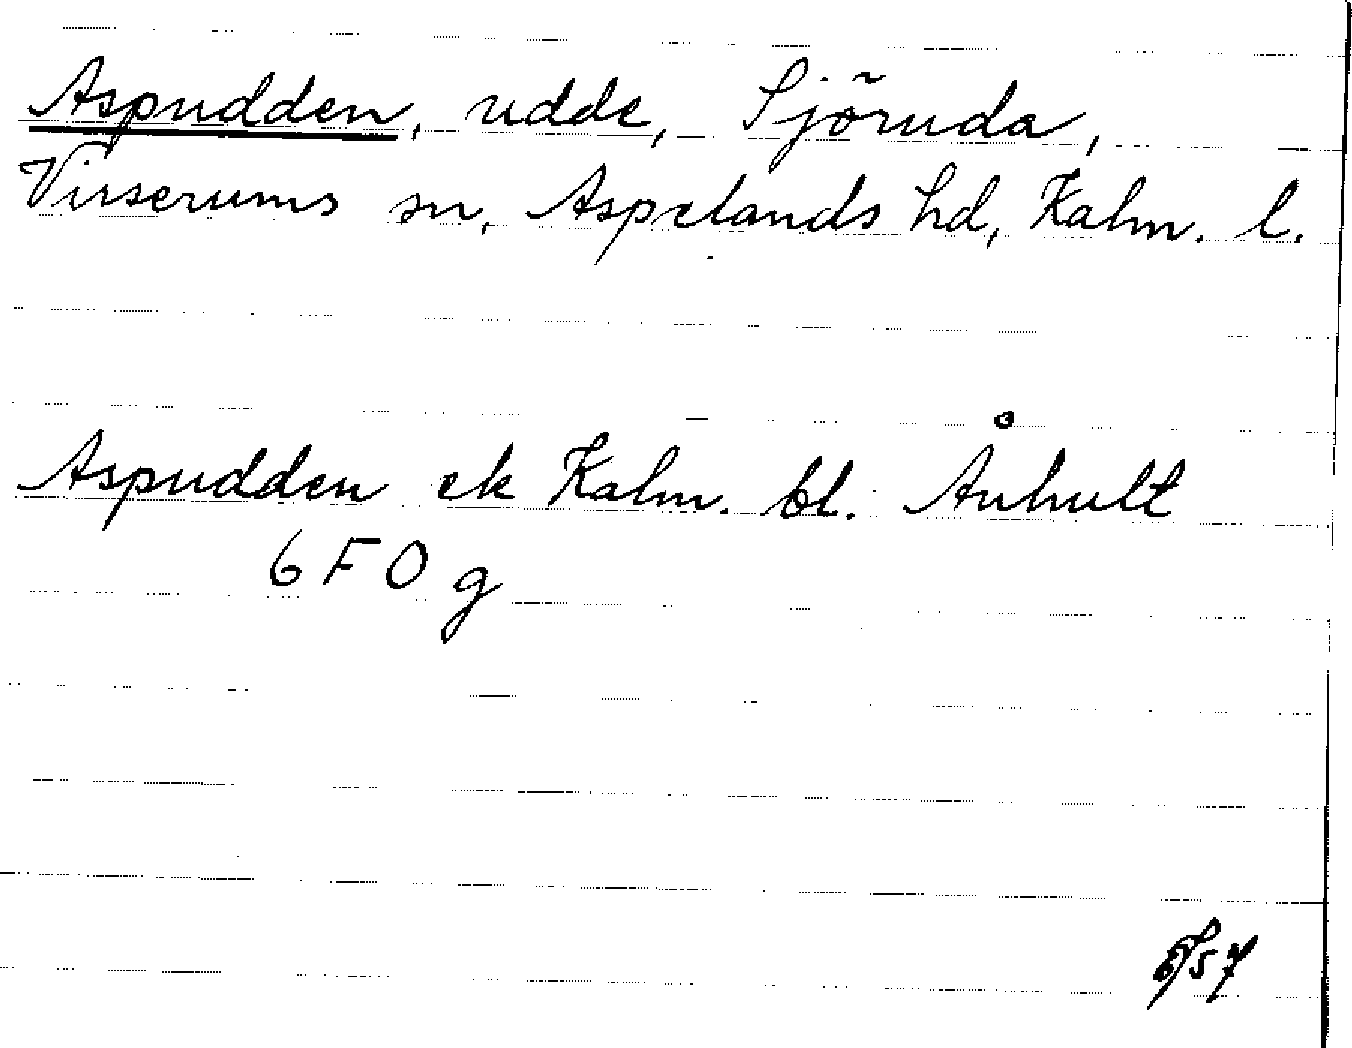 Aspudden, udde, Sjöruda,
Virserums sn, Aspelands hd, Kalm. l.
Aspudden ek Kalm. bl. Århult
6 F O g